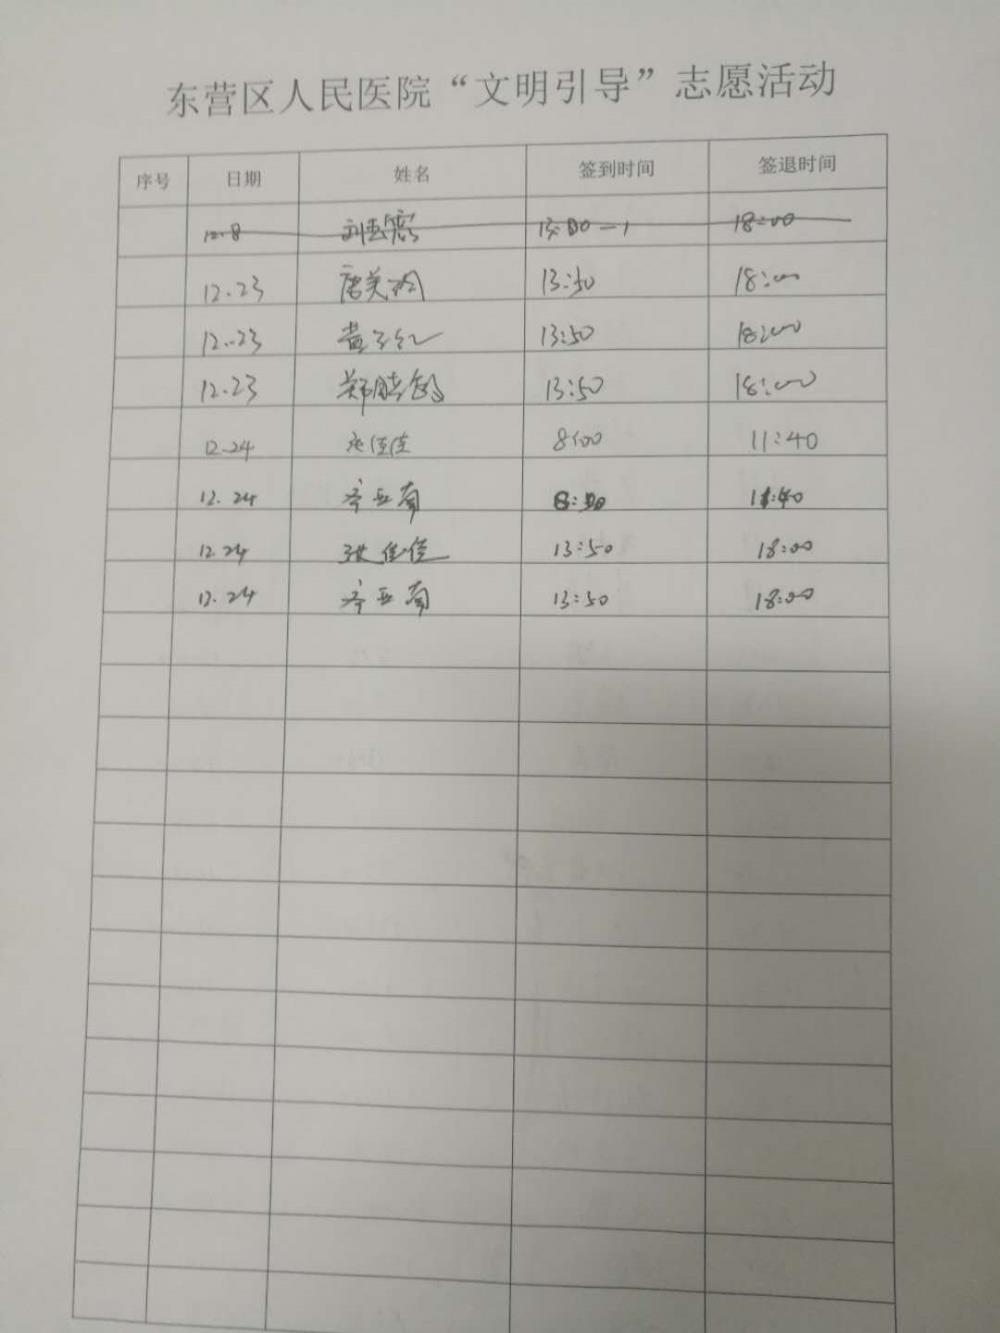 东营区人民医院“文明引导”志愿活动
序号 日期 姓名 签到时间 签退时间
12.8 18:00
12.23 唐美 18:00
12.23 黄子红 13:50 18:00
12.23 郑晓 13:50 18:00
12.24 佳佳 8:00 11:40
12.24 齐亚南 11:40
12.24 张佳佳 13:50 18:00
12.24 齐亚南 13:50 18:00